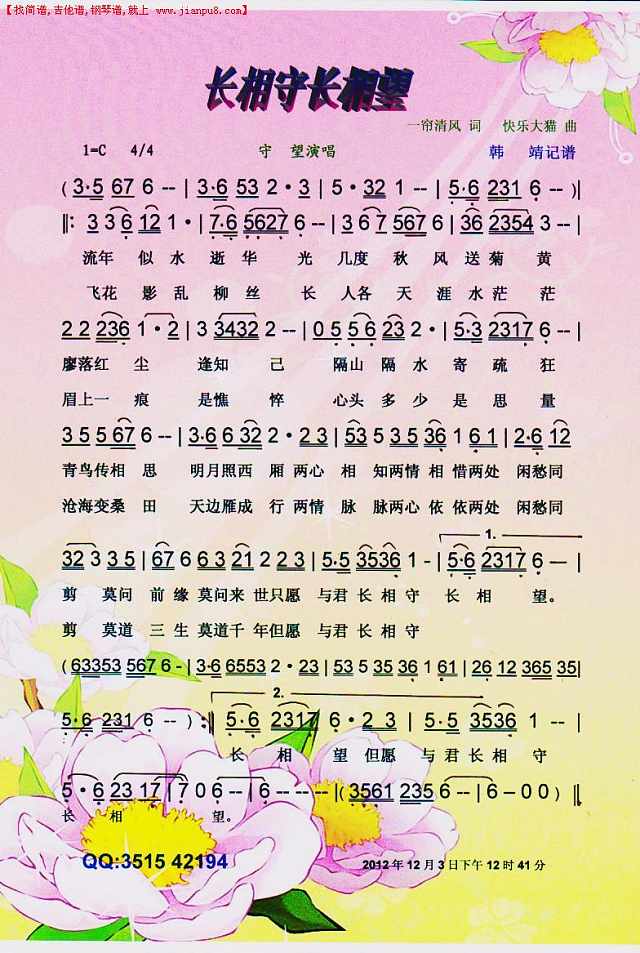 【找简谱,吉他谱,钢琴谱,就上 www.jianpu8.com】
长相守长相望
一帘清风 词 快乐大猫 曲
1=C 4/4 守 望演唱 韩 靖记谱
(3·5 67 6 -- | 3·6 53 2·3 | 5·32 1 -- | 5·6 231 6 --)|
‖: 3 36 12 1· | 7·6 5627 6 -- | 3 67 567 6 | 36 2354 3 -- |
流年 似 水 逝 华 光 几度 秋 风 送 菊 黄
飞花 影 乱 柳 丝 长 人各 天 涯 水 茫 茫
2 2 236 1·2 | 3 3432 2 -- | 0 5 56 23 2· | 5·3 2317 6 -- |
廖落红 尘 逢知 己 隔山 隔 水 寄 疏 狂
眉上一 痕 是憔 悴 心头 多 少 是 思 量
3 5 5 67 6 -- | 3·6 6 32 2·23 | 53 5 35 36 1 61 | 2·6 12
青鸟传相 思 明月照西 厢 两心 相 知两情 相 惜两处 闲愁同
沧海变桑 田 天边雁成 行 两情 脉 脉两心 依 依两处 闲愁同
1.
32 3 3 5 | 67 6 63 21 2 2 3 | 5·5 3536 1 - | 5·6 2317 6 — |
剪 莫问 前 缘 莫问来 世只愿 与君 长 相 守 长 相 望。
剪 莫道 三 生 莫道千 年但愿 与君 长 相 守
(63353 567 6 - | 3·6 6553 2·23 | 53 5 35 36 1 61 | 26 12 365 35|
2.
5·6 231 6 -- ) :‖ 5·6 2317 6·2 3 | 5·5 3536 1 -- |
长 相 望 但愿 与 君 长 相 守
5·6 23 17 | 7 0 6 -- | -- -- |(3561 235 6 -- | 6-00)‖
长 相 望。
QQ:3515 42194 2012年12月3日下午12时41分